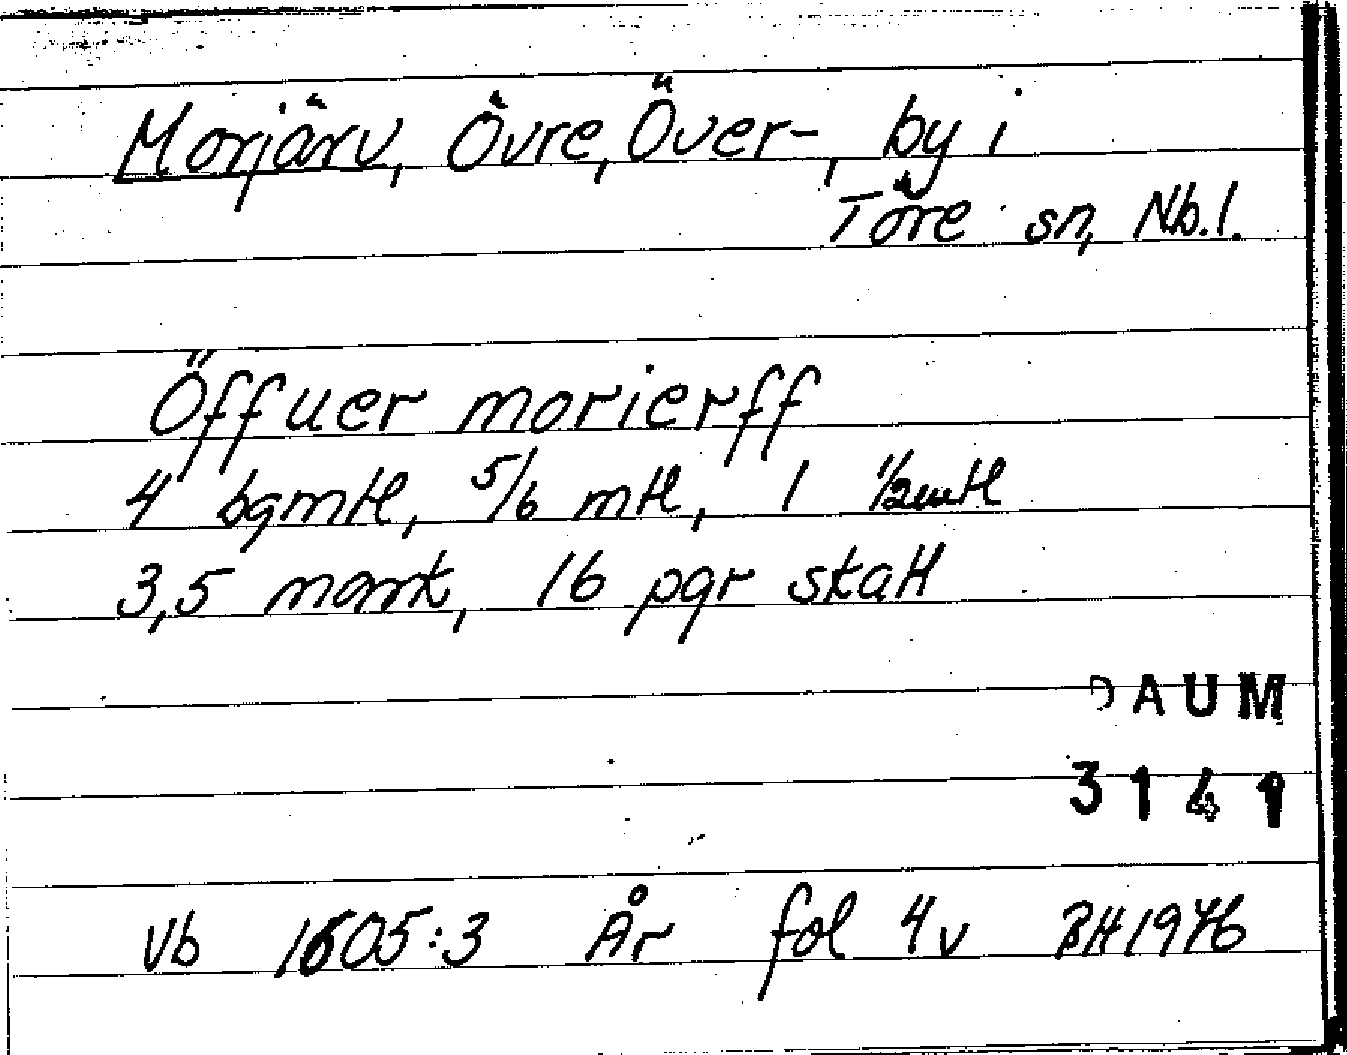 Morjärv, Övre, Över-, by i
Töre sn, Nb.l.
Öffuer morierff
4 bgmtl, 5/6 mtl, 1 1/2mtl
3,5 mark, 16 pgr skatt
DAUM
3141
Vb 1605:3 År fol 4v BH1976